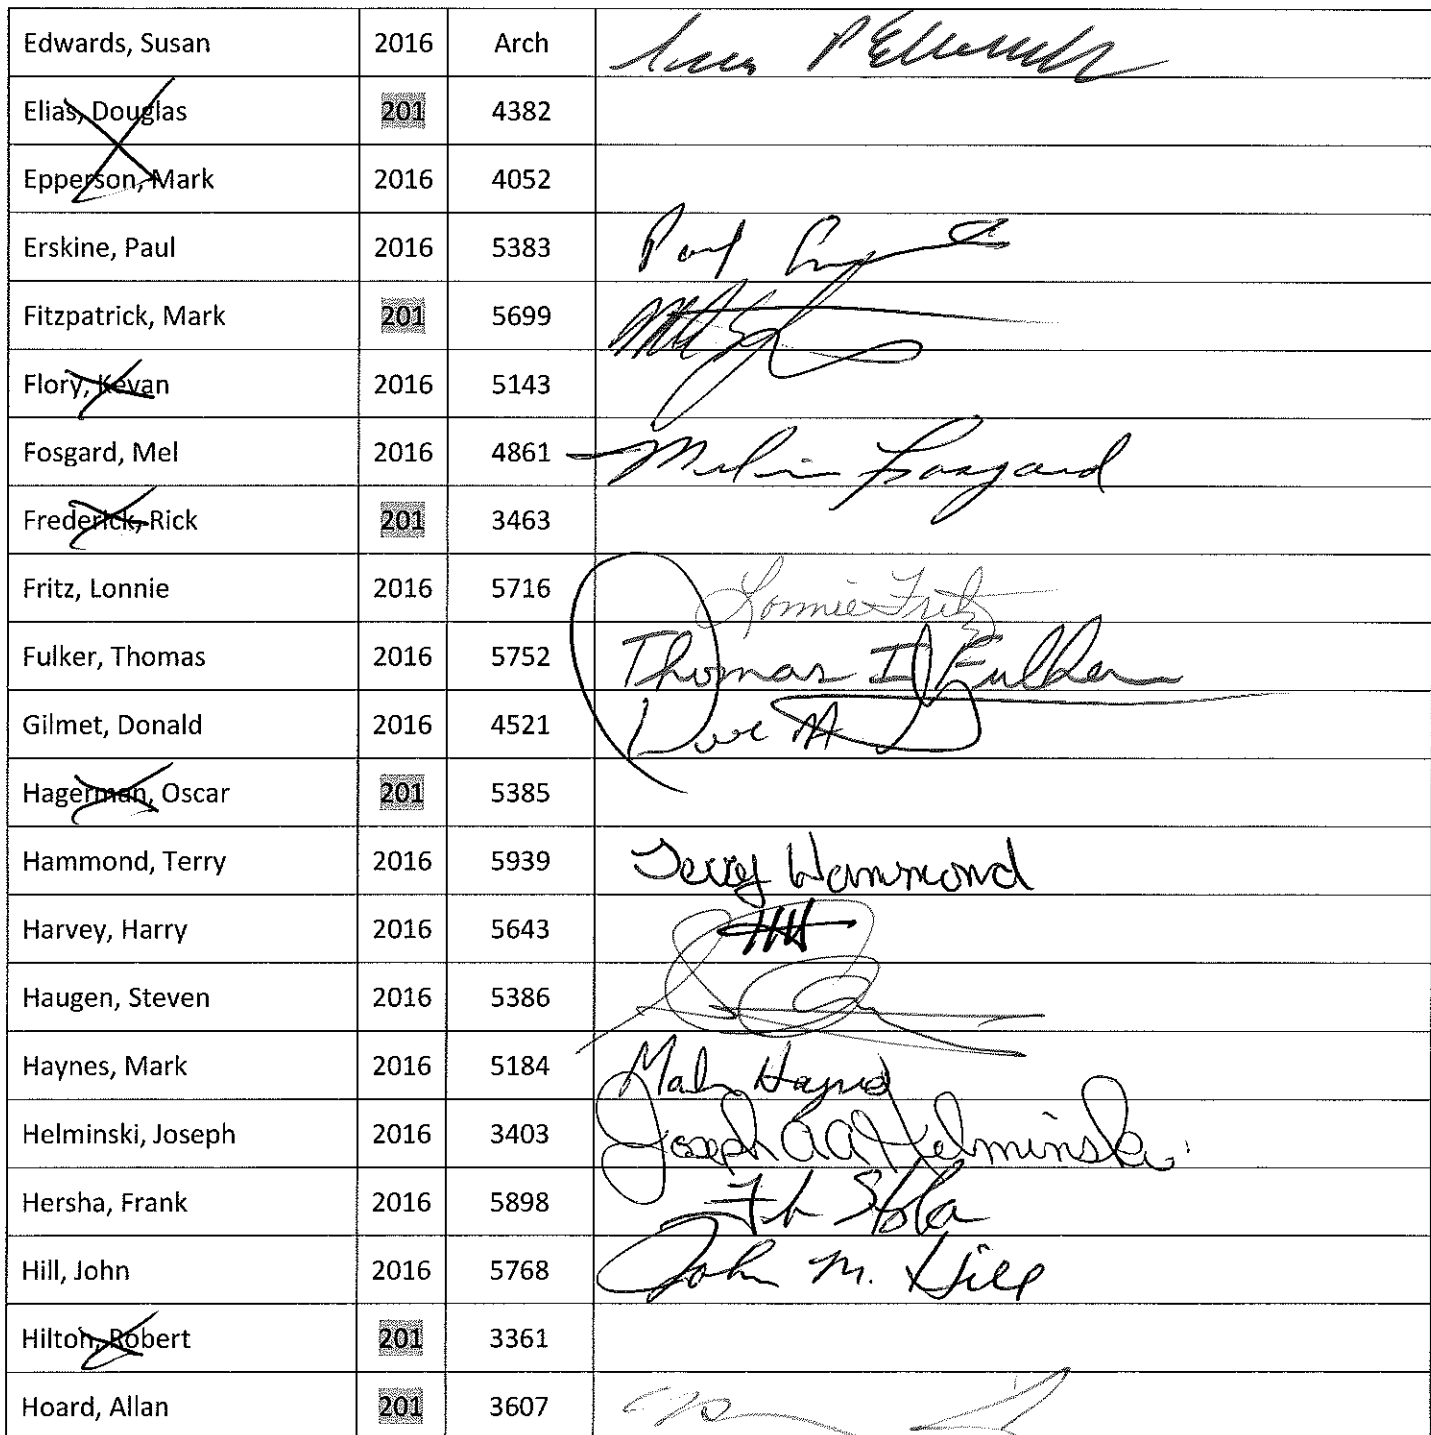 Edwards, Susan 2016 Arch
Elias, Douglas 201 4382
Epperson, Mark 2016 4052
Erskine, Paul 2016 5383 Paul
Fitzpatrick, Mark 201 5699
Flory, Kevan 2016 5143
Fosgard, Mel 2016 4861 Melvin Fosgard
Frederick, Rick 201 3463
Fritz, Lonnie 2016 5716 Lonnie Fritz
Fulker, Thomas 2016 5752 Thomas I Fulker
Gilmet, Donald 2016 4521
Hagerman, Oscar 201 5385
Hammond, Terry 2016 5939 Terry Hammond
Harvey, Harry 2016 5643 HH
Haugen, Steven 2016 5386
Haynes, Mark 2016 5184 Mark Haynes
Helminski, Joseph 2016 3403 Joseph A Helminski
Hersha, Frank 2016 5898
Hill, John 2016 5768 John M. Hill
Hilton, Robert 201 3361
Hoard, Allan 201 3607